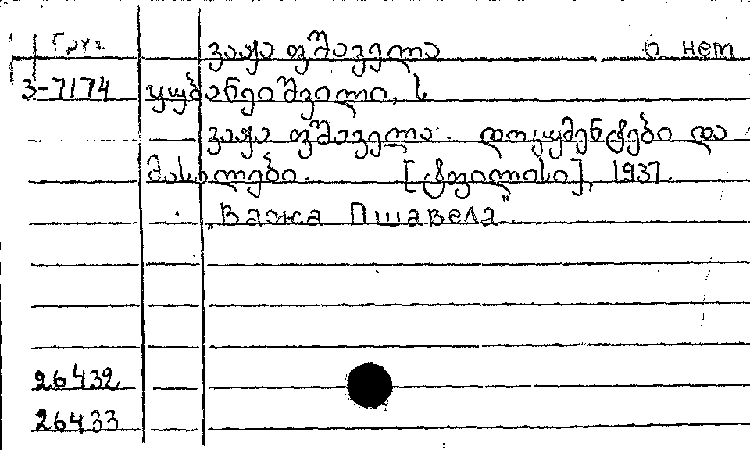 Груз ვაჟა ფშაველა о нем
3-7174 ყუბანეიშვილი, ს
ვაჟა ფშაველა. დოკუმენტები და
მასალები. [ტფილისი], 1937.
„Важа Пшавела”.
26432
26433